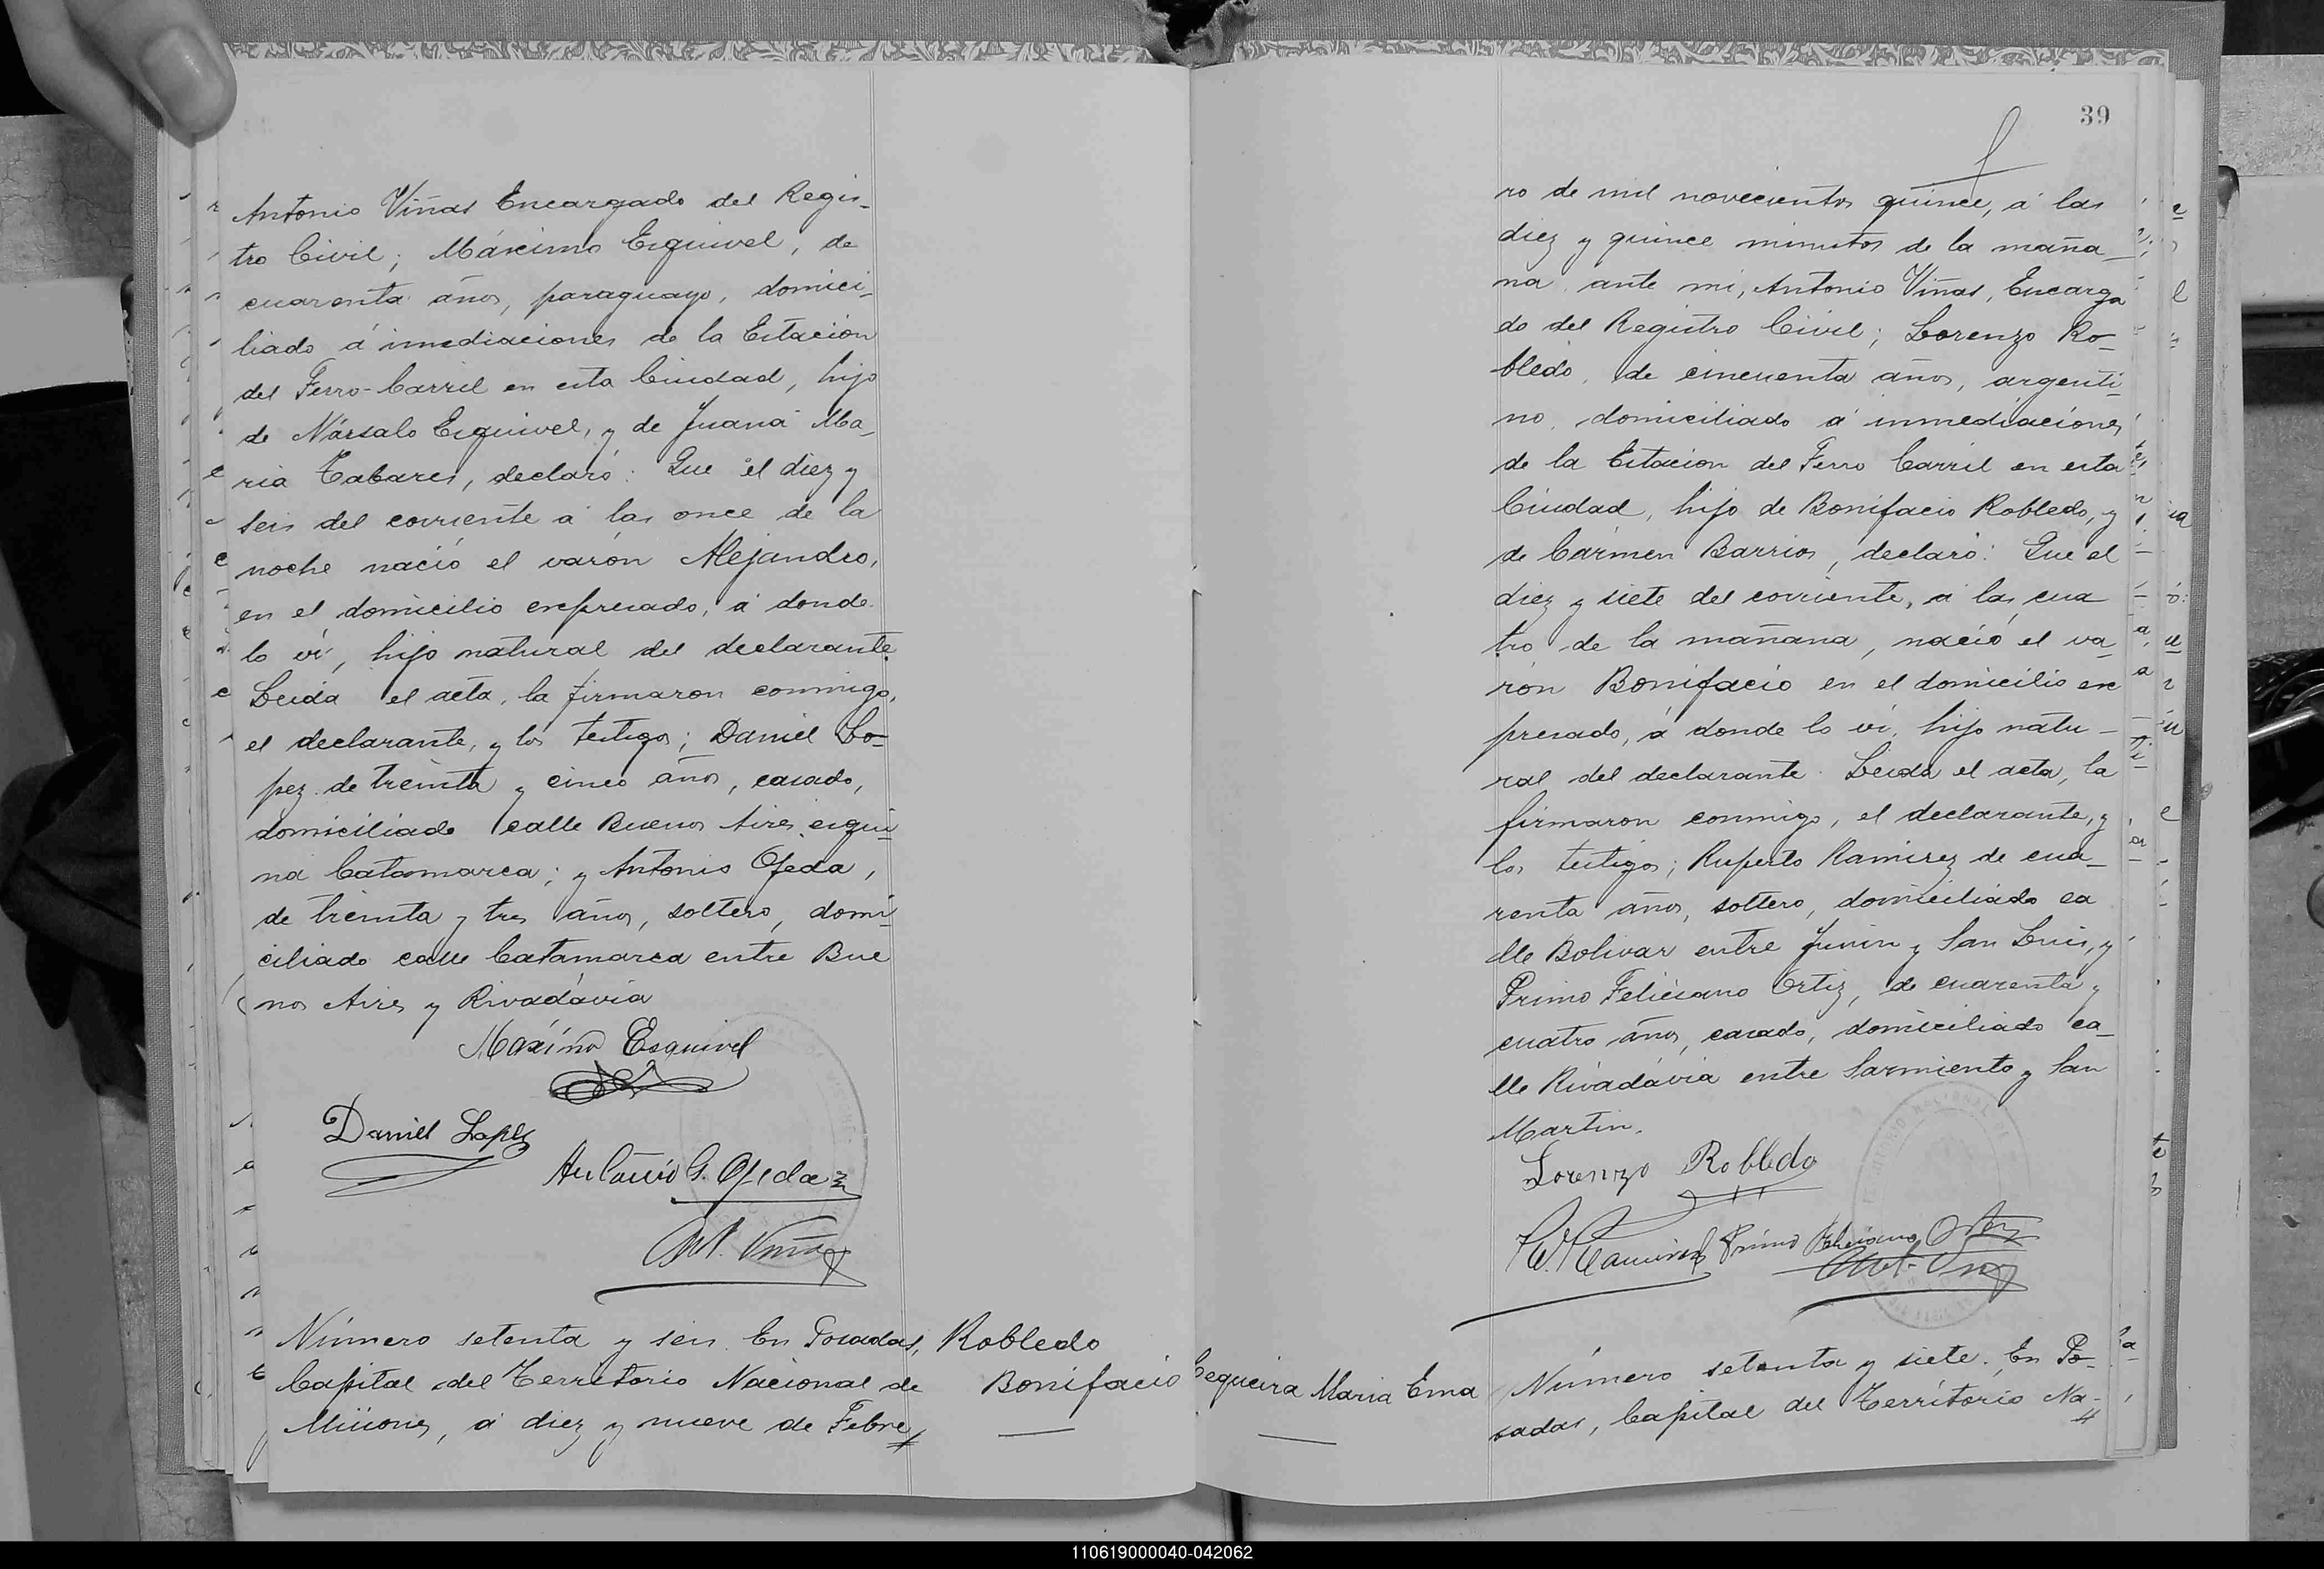 Antonio Viñas Encargado del Regis-
tro Civil; Máximo Esquivel, de
cuarenta años, paraguayo, domici-
liado á inmediaciones de la Estación
del Ferro-Carril en esta Ciudad, hijo
de Nársalo Esquivel, y de Juana Ma-
ria Tabares, declaró: Que el diez y
seis del corriente a las once de la
noche nació el varón Alejandro,
en el domicilio expresado, á donde
lo ví, hijo natural del declarante.
Leida el acta, la firmaron conmigo,
el declarante, y los testigos; Daniel Lo-
pez de treinta y cinco años, casado,
domiciliado calle Buenos Aires esqui-
na Catamarca; y Antonio Ojeda,
de treinta y tres años, soltero, domi-
ciliado calle Catamarca entre Bue
nos Aires y Rivadavia
Maximo Esquivel
Daniel Lopez
Antonio G. Ojeda
Ant. Viñas
Número setenta y seis. En Posadas,
Capital del Territorio Nacional de
Misiones, á diez y nueve de Febre
Robledo
Bonifacio
39
ro de mil novecientos quince, á las
diez y quince minutos de la maña-
na, ante mi, Antonio Viñas, Encarga
do del Registro Civil; Lorenzo Ro-
bledo, de cincuenta años, argenti-
no, domiciliado á inmediaciones
de la Estacion del Ferro Carril en esta
Ciudad, hijo de Bonifacio Robledo, y
de Cármen Barrios, declaró: Que el
diez y siete del corriente, a las cua
tro de la mañana, nació el va-
rón Bonifacio en el domicilio ex
presado, á donde lo ví, hijo natu-
ral del declarante. Leida el acta, la
firmaron conmigo, el declarante, y
los testigos; Ruperto Ramirez de cua-
renta años, soltero, domiciliado ca
lle Bolivar entre Junin y San Luis, y
Primo Feliciano Ortiz, de cuarenta y
cuatro años, casado, domiciliado ca-
lle Rivadávia entre Sarmiento y San
Martin.
Lorenzo Robledo
R. Ramirez Primo Feliciano Ortiz
Ant. Viñas
Cequeira Maria Ema
Número setenta y siete. En Po-
sadas, Capital del Territorio Na-
110619000040-042062